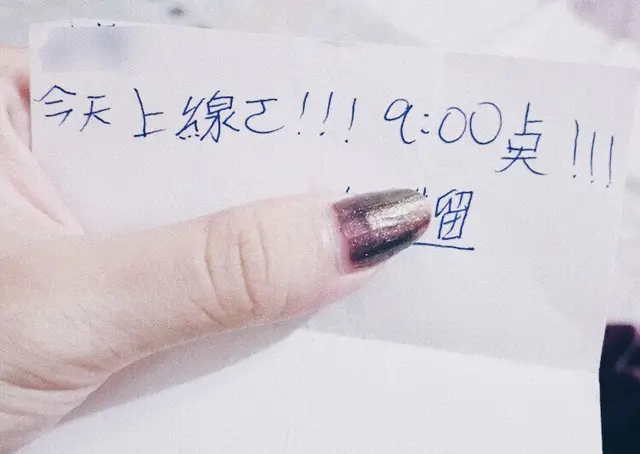 今天上線ㄛ!!! 9:00点!!!
留